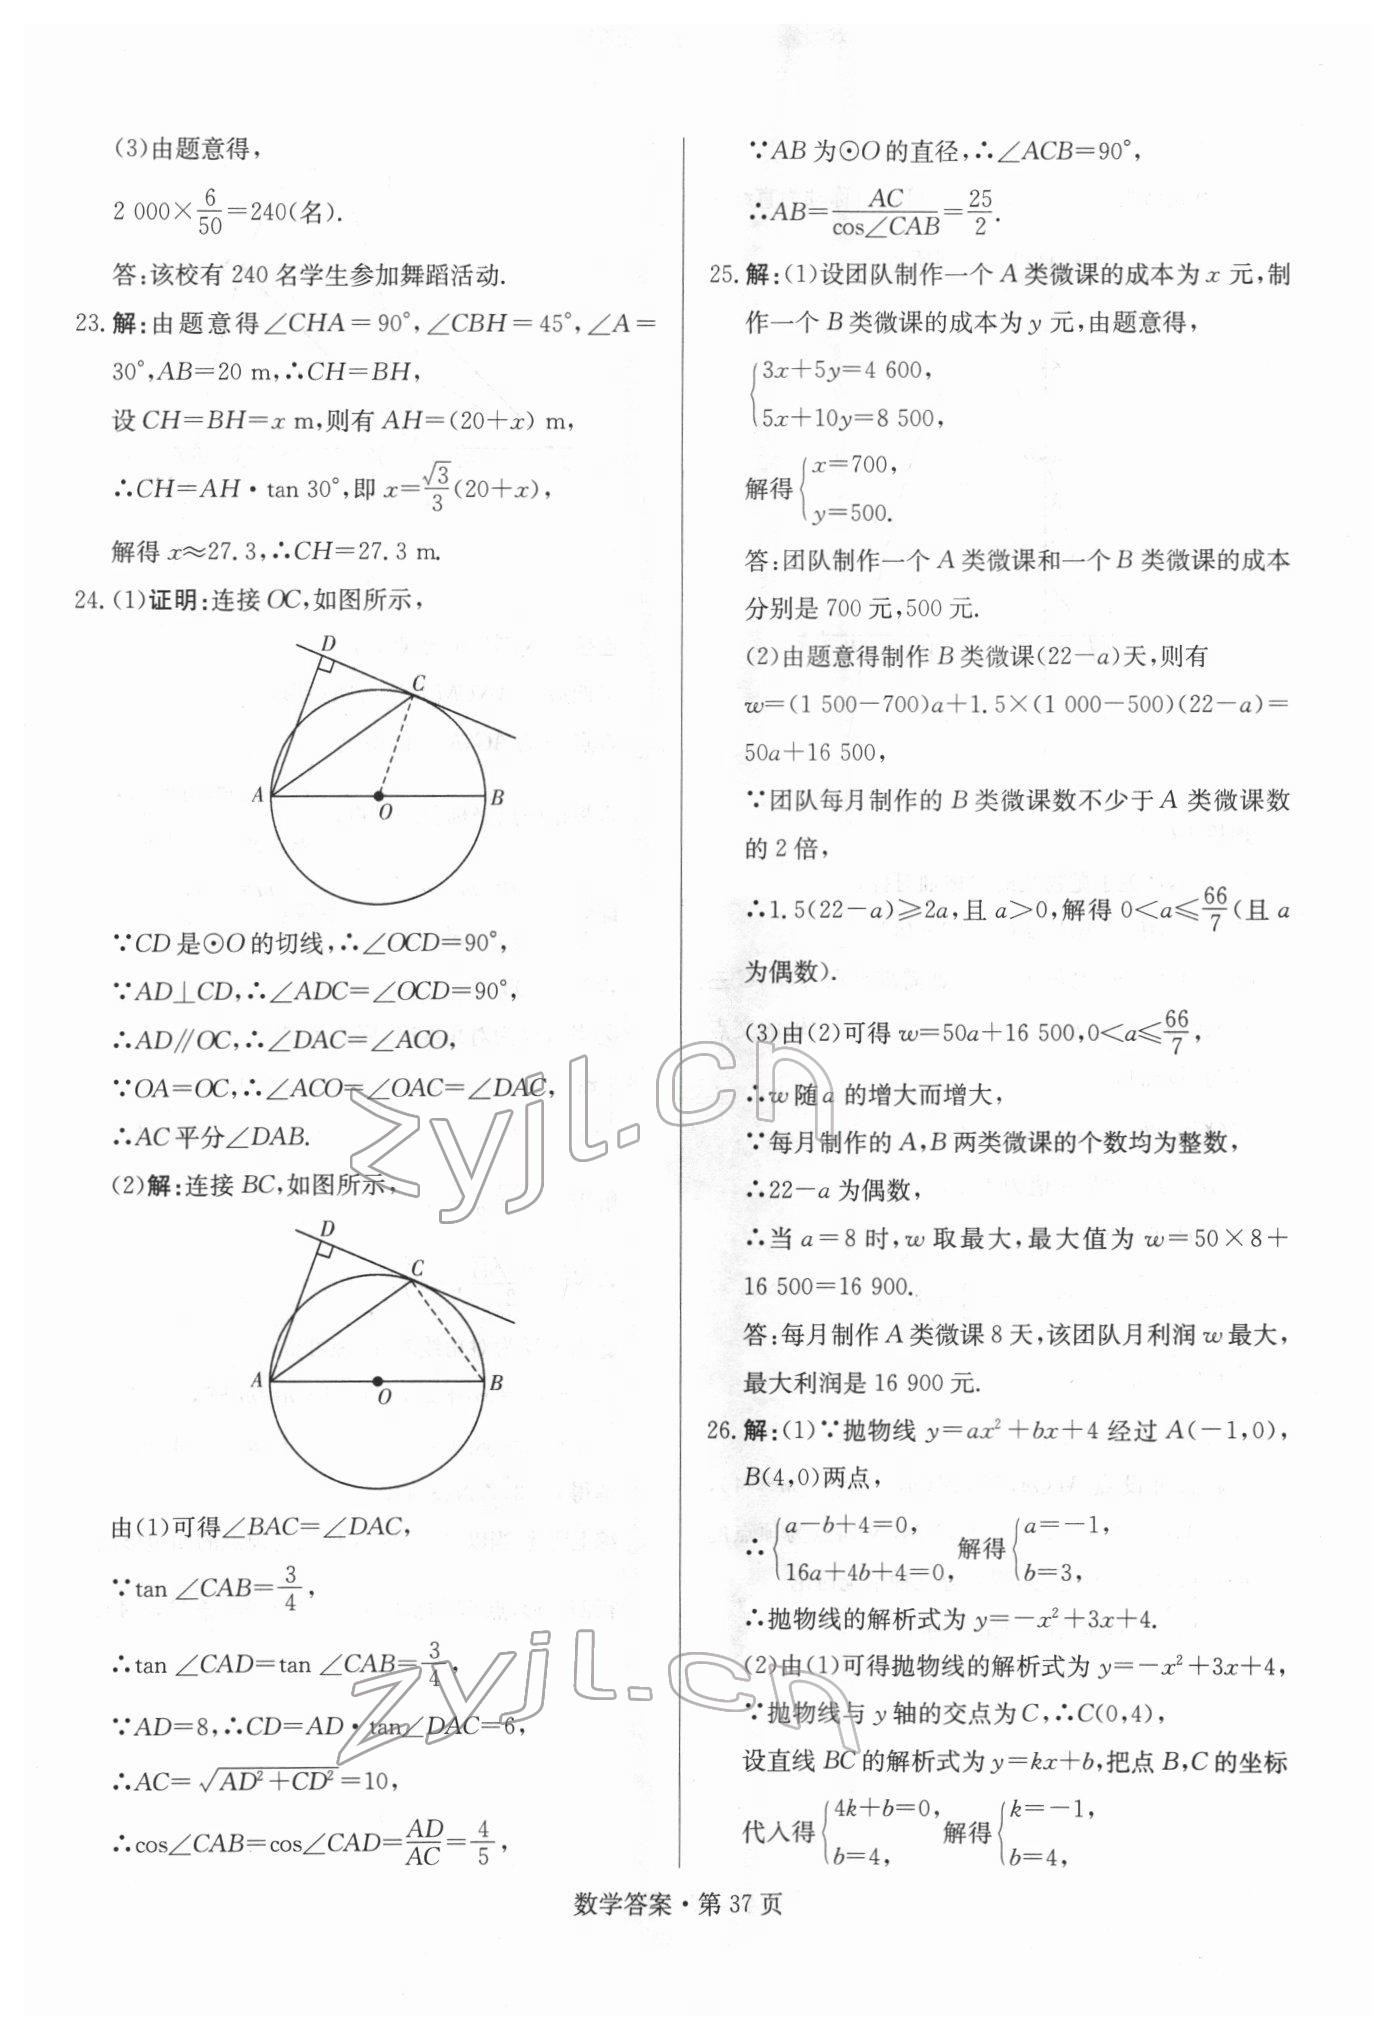 (3)由题意得,
2 000×6/50=240(名).
答:该校有 240 名学生参加舞蹈活动.
23. 解:由题意得∠CHA=90°,∠CBH=45°,∠A=
30°,AB=20 m,∴CH=BH,
设 CH=BH=x m,则有 AH=(20+x) m,
∴CH=AH·tan 30°,即 x=√3/3(20+x),
解得 x≈27.3,∴CH=27.3 m.
24. (1)证明:连接 OC,如图所示,
D
C
A
O
B
∵CD 是⊙O 的切线,∴∠OCD=90°,
∵AD⊥CD,∴∠ADC=∠OCD=90°,
∴AD∥OC,∴∠DAC=∠ACO,
∵OA=OC,∴∠ACO=∠OAC=∠DAC,
∴AC 平分∠DAB.
(2)解:连接 BC,如图所示,
D
C
A
O
B
由(1)可得∠BAC=∠DAC,
∵tan ∠CAB=3/4,
∴tan ∠CAD=tan ∠CAB=3/4,
∵AD=8,∴CD=AD·tan∠DAC=6,
∴AC=√(AD²+CD²)=10,
∴cos∠CAB=cos∠CAD=AD/AC=4/5,
∵AB 为⊙O 的直径,∴∠ACB=90°,
∴AB=AC/cos∠CAB=25/2.
25. 解:(1)设团队制作一个 A 类微课的成本为 x 元,制
作一个 B 类微课的成本为 y 元,由题意得,
{3x+5y=4 600,
5x+10y=8 500,
解得{x=700,
y=500.
答:团队制作一个 A 类微课和一个 B 类微课的成本
分别是 700 元,500 元.
(2)由题意得制作 B 类微课(22-a)天,则有
w=(1 500-700)a+1.5×(1 000-500)(22-a)=
50a+16 500,
∵团队每月制作的 B 类微课数不少于 A 类微课数
的 2 倍,
∴1.5(22-a)≥2a,且 a>0,解得 0<a≤66/7(且 a
为偶数).
(3)由(2)可得 w=50a+16 500,0<a≤66/7,
∴w 随 a 的增大而增大,
∵每月制作的 A,B 两类微课的个数均为整数,
∴22-a 为偶数,
∴当 a=8 时,w 取最大,最大值为 w=50×8+
16 500=16 900.
答:每月制作 A 类微课 8 天,该团队月利润 w 最大,
最大利润是 16 900 元.
26. 解:(1)∵抛物线 y=ax²+bx+4 经过 A(-1,0),
B(4,0)两点,
∴{a-b+4=0, 16a+4b+4=0, 解得{a=-1, b=3,
∴抛物线的解析式为 y=-x²+3x+4.
(2)由(1)可得抛物线的解析式为 y=-x²+3x+4,
∵抛物线与 y 轴的交点为 C,∴C(0,4),
设直线 BC 的解析式为 y=kx+b,把点 B,C 的坐标
代入得{4k+b=0, b=4, 解得{k=-1, b=4,
数学答案·第 37 页
zyjl.cn
zyjl.cn